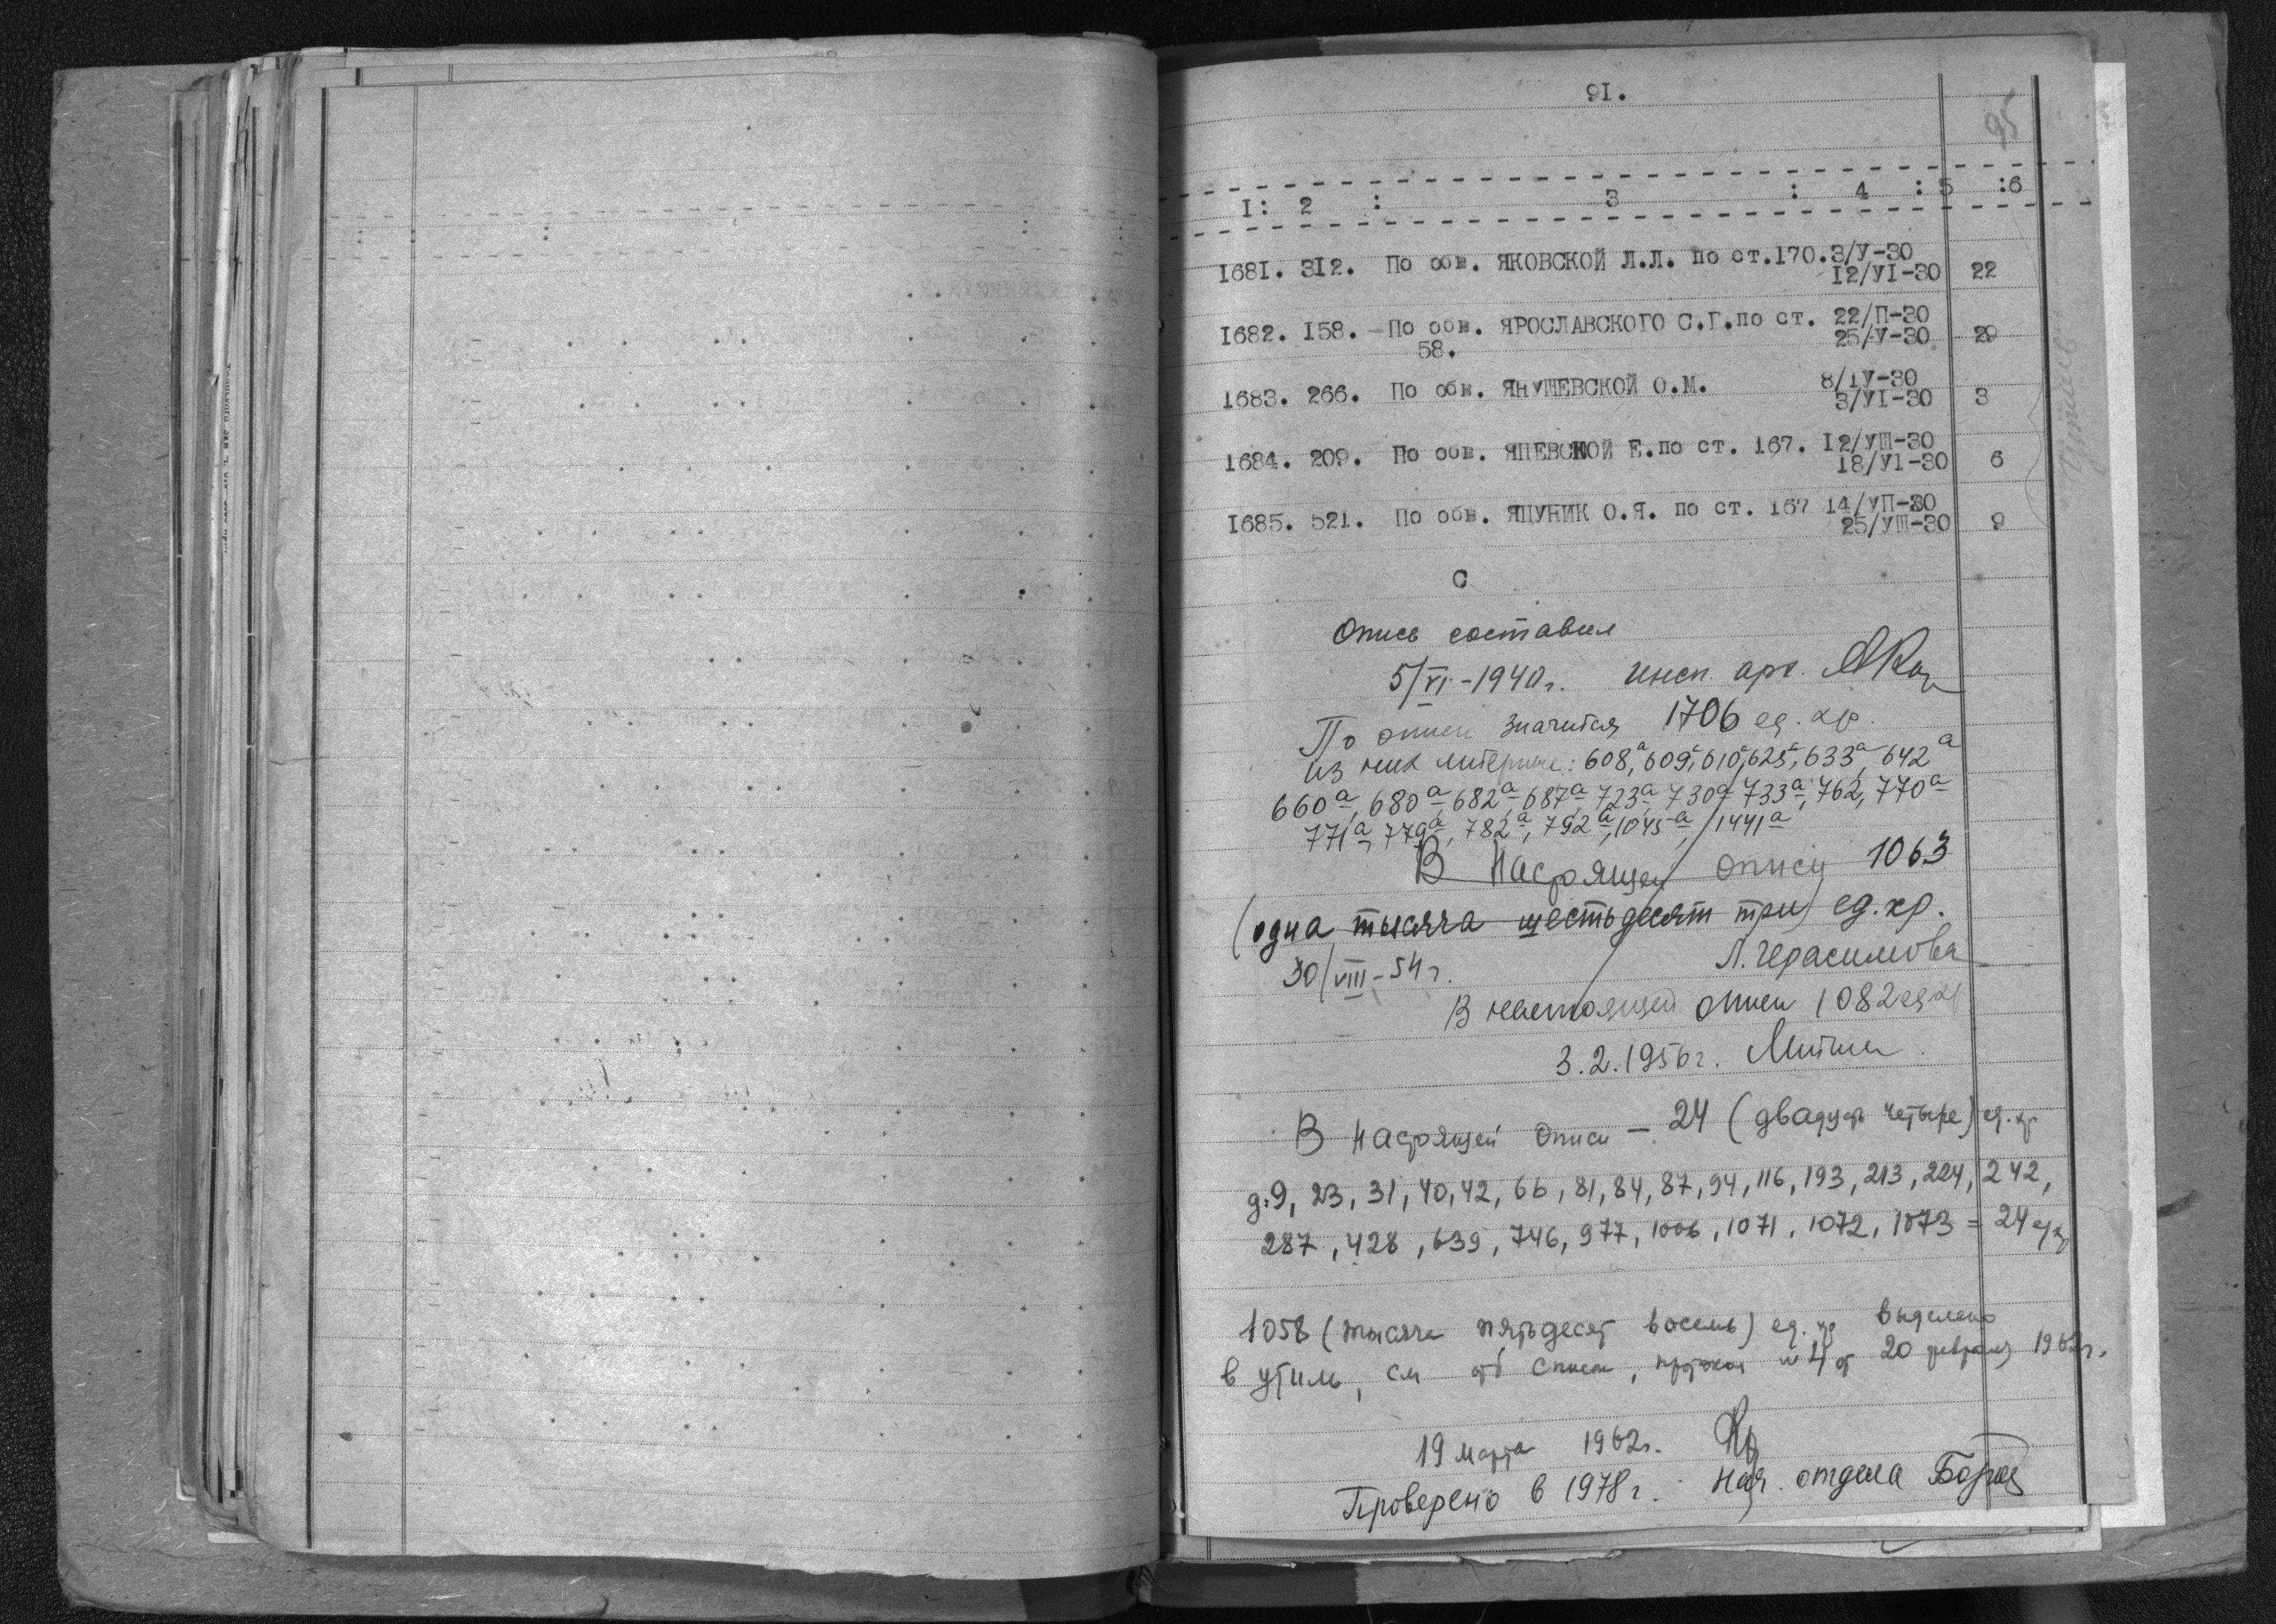 91.
95
1: 2 : 3 : 4 : 5 :6
1681. 312. По обв. ЯКОВСКОЙ Л.Л. по ст.170. 3/У-30
12/УІ-30 22
1682. 158. По обв. ЯРОСЛАВСКОГО С.Г.по ст. 22/П-30
58. 25/У-30 29
1683. 266. По обв. ЯНУШЕВСКОЙ О.М. 8/1У-30
3/УІ-30 3
1684. 209. По обв. ЯПЕВСКОЙ Е.по ст. 167. 12/УШ-30
18/УІ-30 6
1685. 521. По обв. ЯЦУНИК О.Я. по ст. 167 14/УП-30
25/УШ-30 9
С
Опись составил
5/VI-1940г. Инсп. арх.
По описи значится 1706 ед. хр.
из них литерные: 608а, 609а, 610а, 625а, 633а, 642а
660а, 680а, 682а, 687а, 723а, 730а, 733а, 762, 770а
771а, 779а, 782а, 792а, 1045а, 1441а
В настоящей описи 1063
(одна тысяча шестьдесят три) ед. хр.
30/VIII-54г. Л. Герасимова
В настоящей описи 1082 ед хр
3.2.1956г.
В настоящей описи – 24 (двадцать четыре) ед. хр
д: 9, 23, 31, 40, 42, 66, 81, 84, 87, 94, 116, 193, 213, 224, 242,
287, 428, 639, 746, 977, 1006, 1071, 1072, 1073 = 24 ед хр
1058 (тысяча пятьдесят восемь) ед. хр выделено
в утиль, см описи, протокол № 4 от 20 февраля 1962г.
19 марта 1962г.
Проверено в 1978г. Нач. отдела